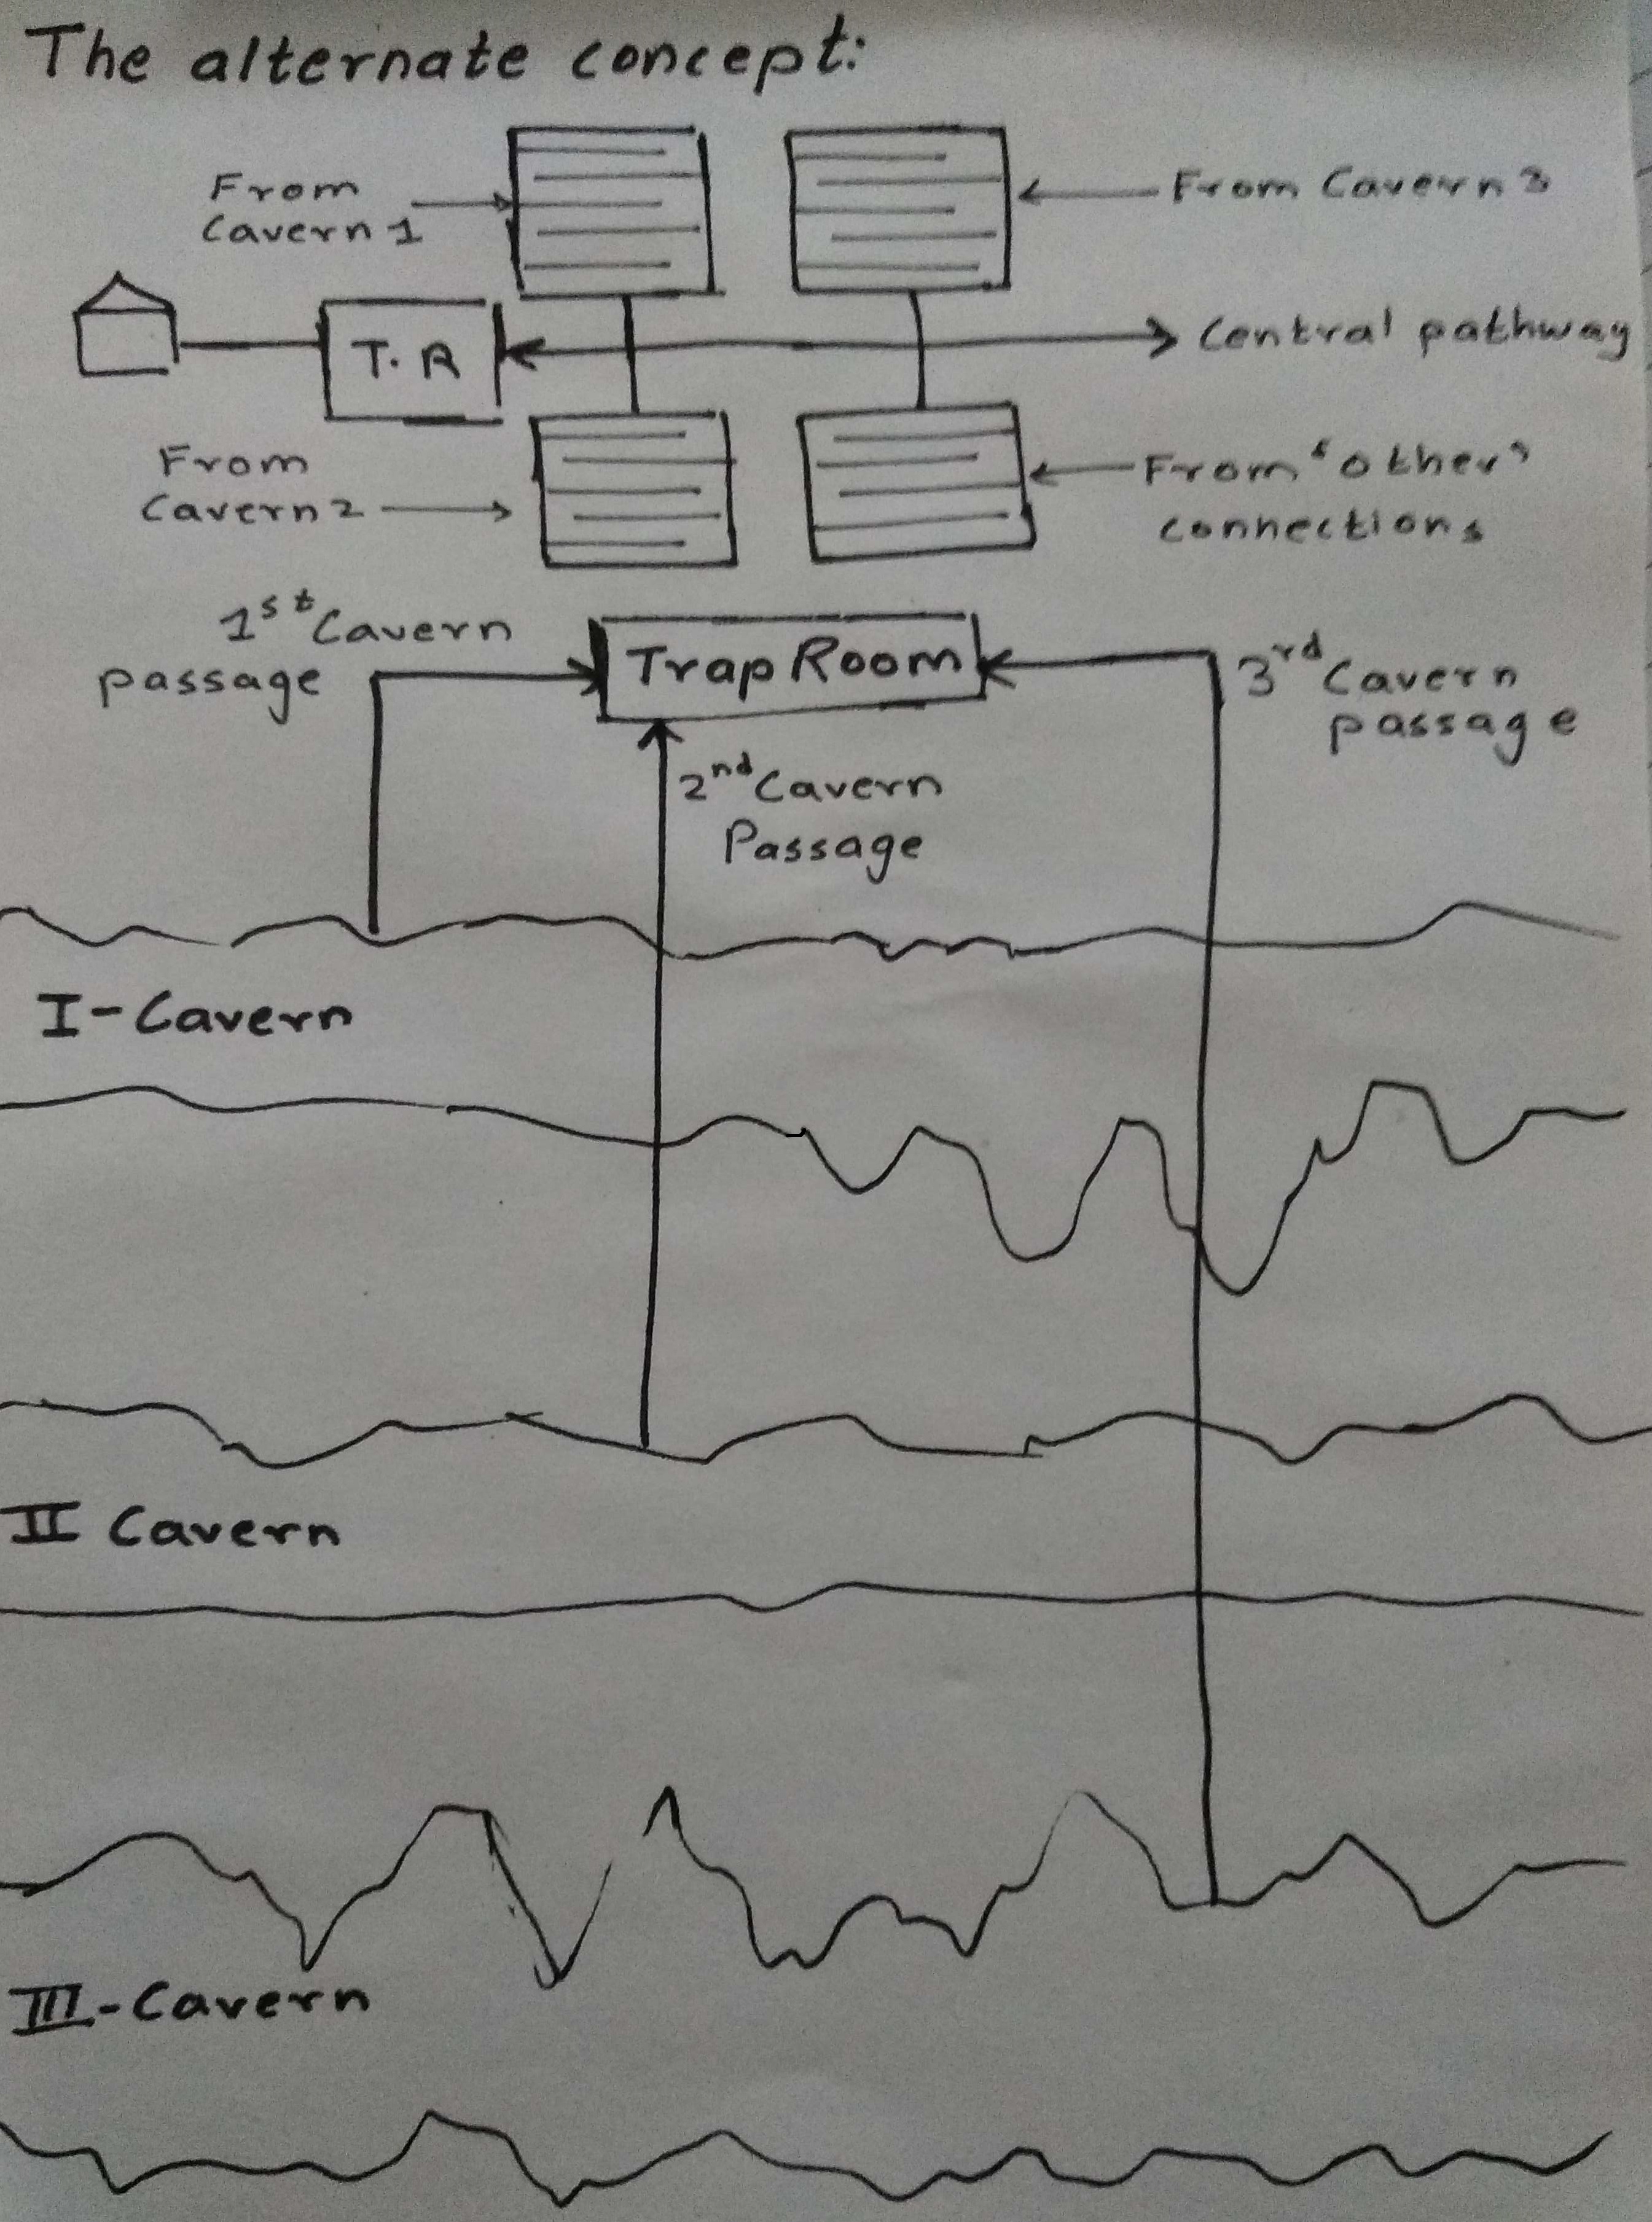 The alternate concept:
From
Cavern 1
From Cavern 3
T.R
Central pathway
From
Cavern 2
From ‘other’
connections
1st Cavern
passage
Trap Room
3rd Cavern
passage
2nd Cavern
Passage
I-Cavern
II Cavern
III-Cavern